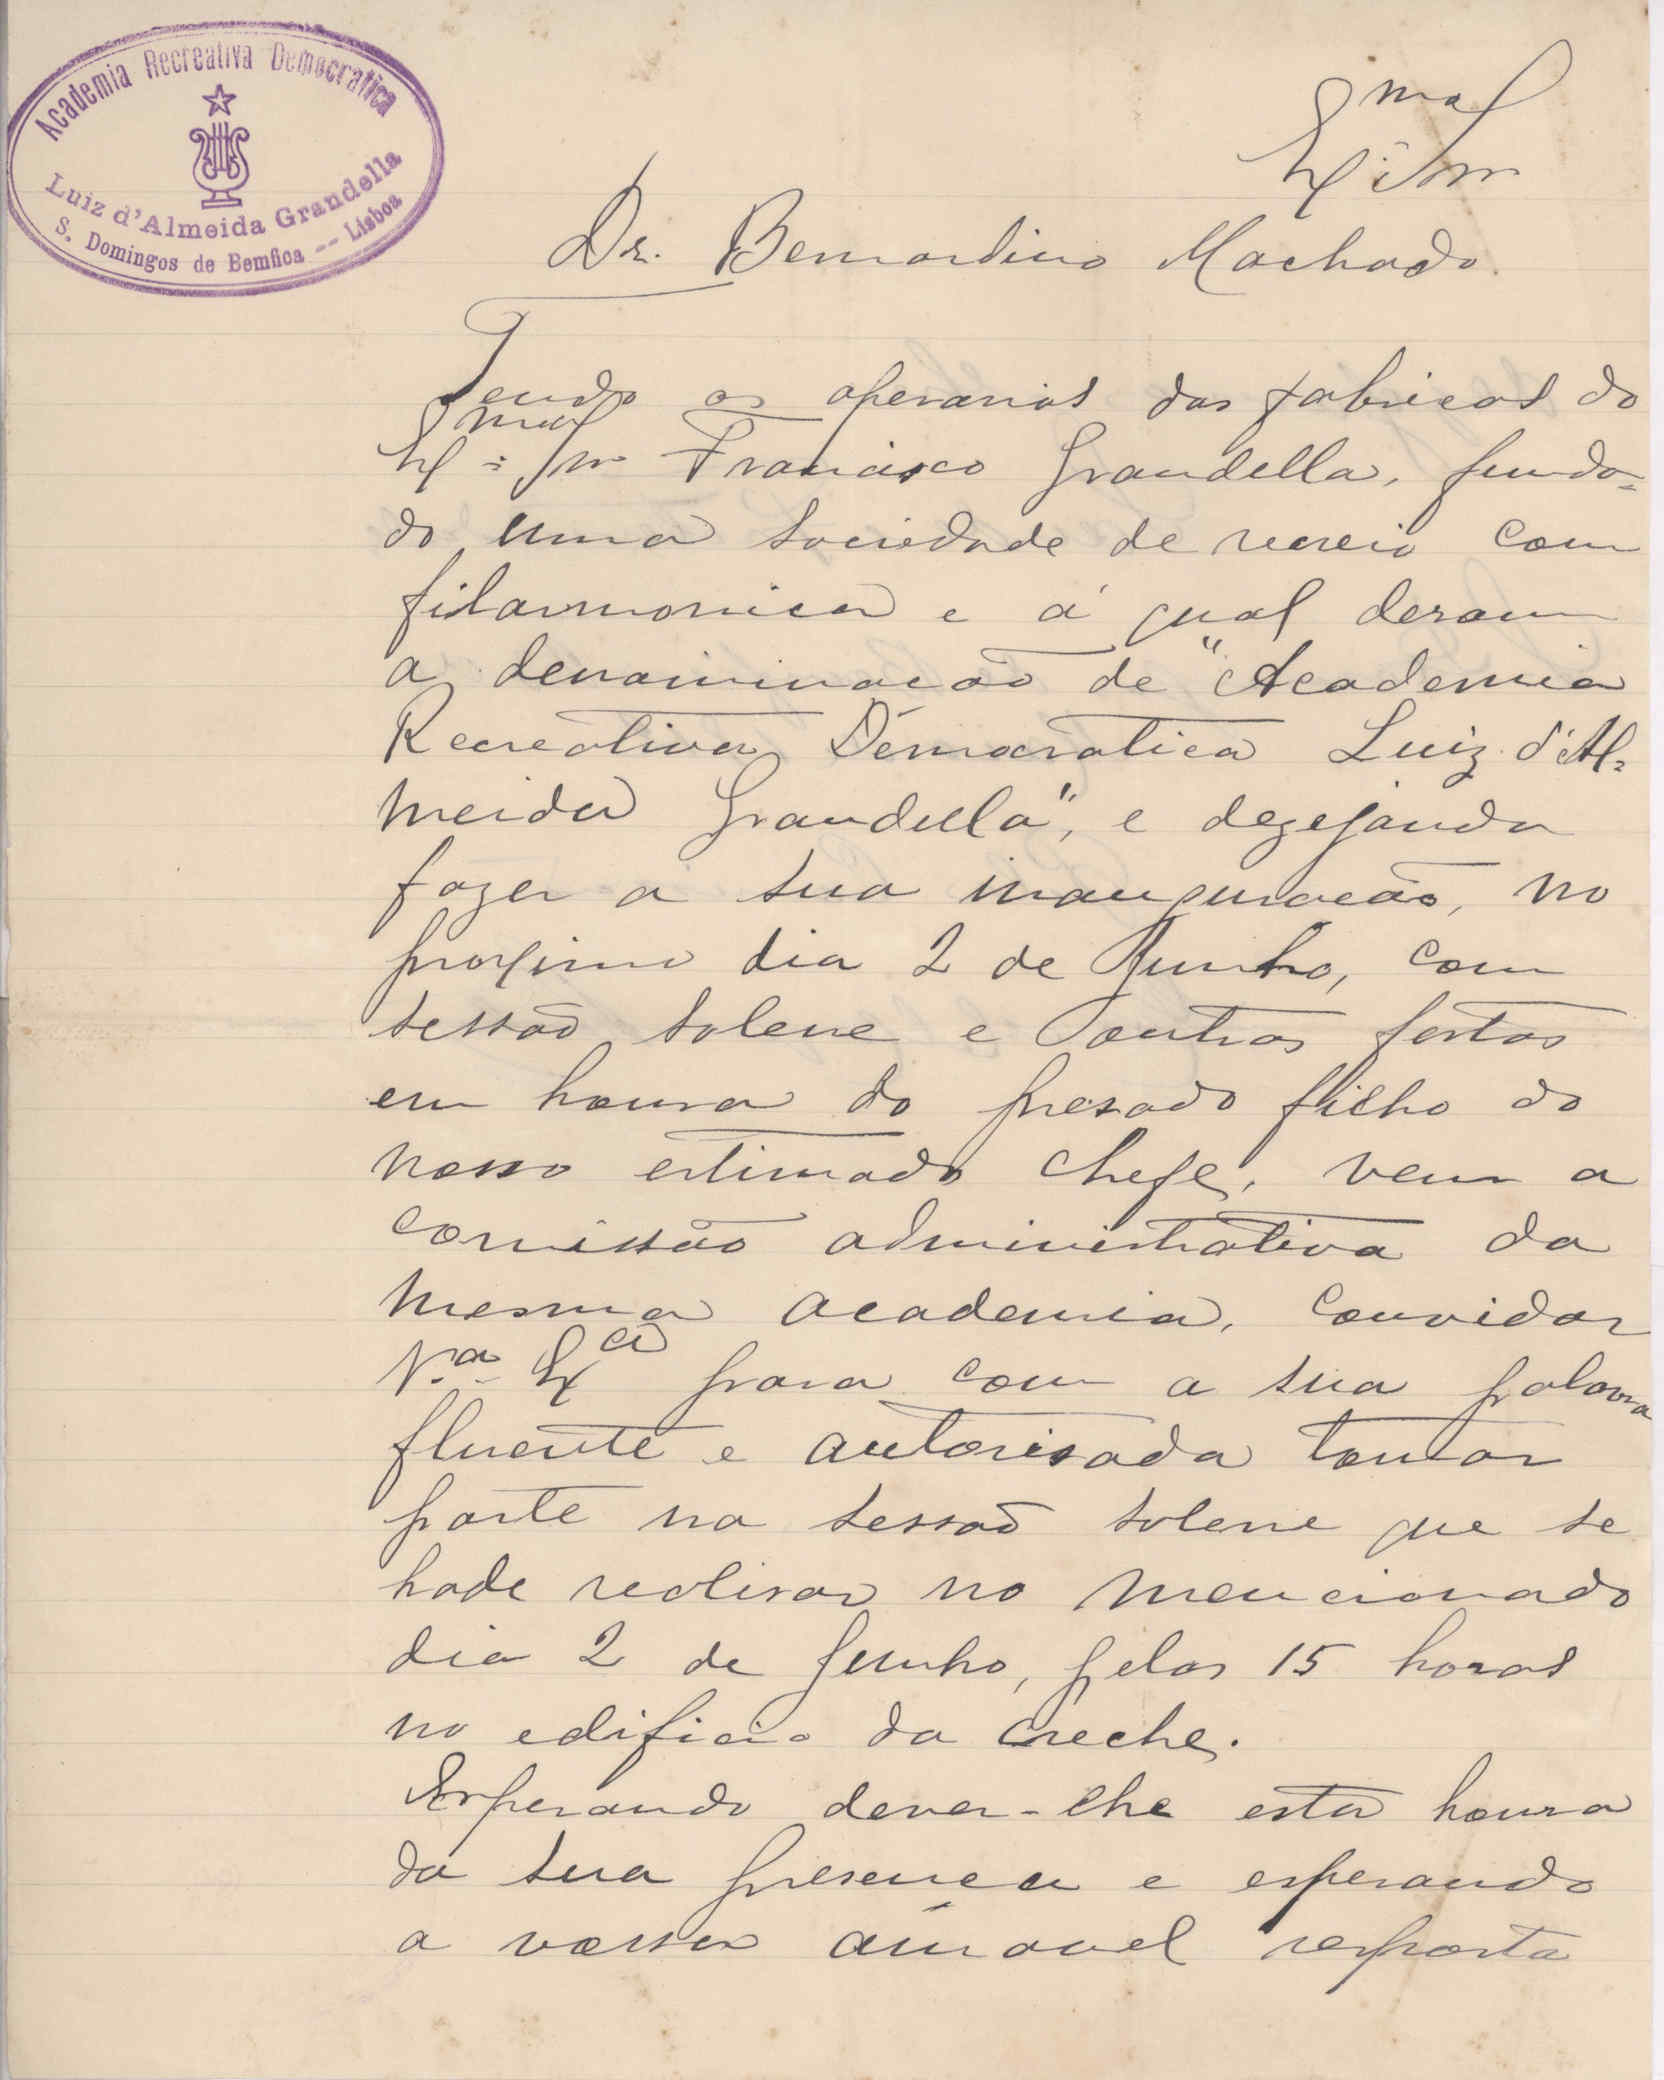 Academia Recreativa Democratica
Luiz d'Almeida Grandella
S. Domingos de Bemfica -- Lisboa
Exmo Snr
Dr. Bernardino Machado.
Tendo os operarios das fabricas do
Exmo Snr Francisco Grandella, funda-
do uma sociedade de recreio com
filarmonica e á qual deram
a denominacão de "Academia
Recreativa Democratica Luiz d'Al-
meida Grandella", e dezejando
fazer a sua inauguracão, no
proximo dia 2 de Junho, com
sessão solene e outras festas
em honra do presado filho do
nosso estimado chefe, vem a
comissão administrativa da
mesma academia, convidar
V.a Exa para com a sua palavra
fluente e autorisada tomar
parte na sessão solene que se
hade realisar no mencionado
dia 2 de Junho, pelas 15 horas
no edificio da creche.
Esperando dever-lhe esta honra
da sua presenca e esperando
a vossa amavel resposta